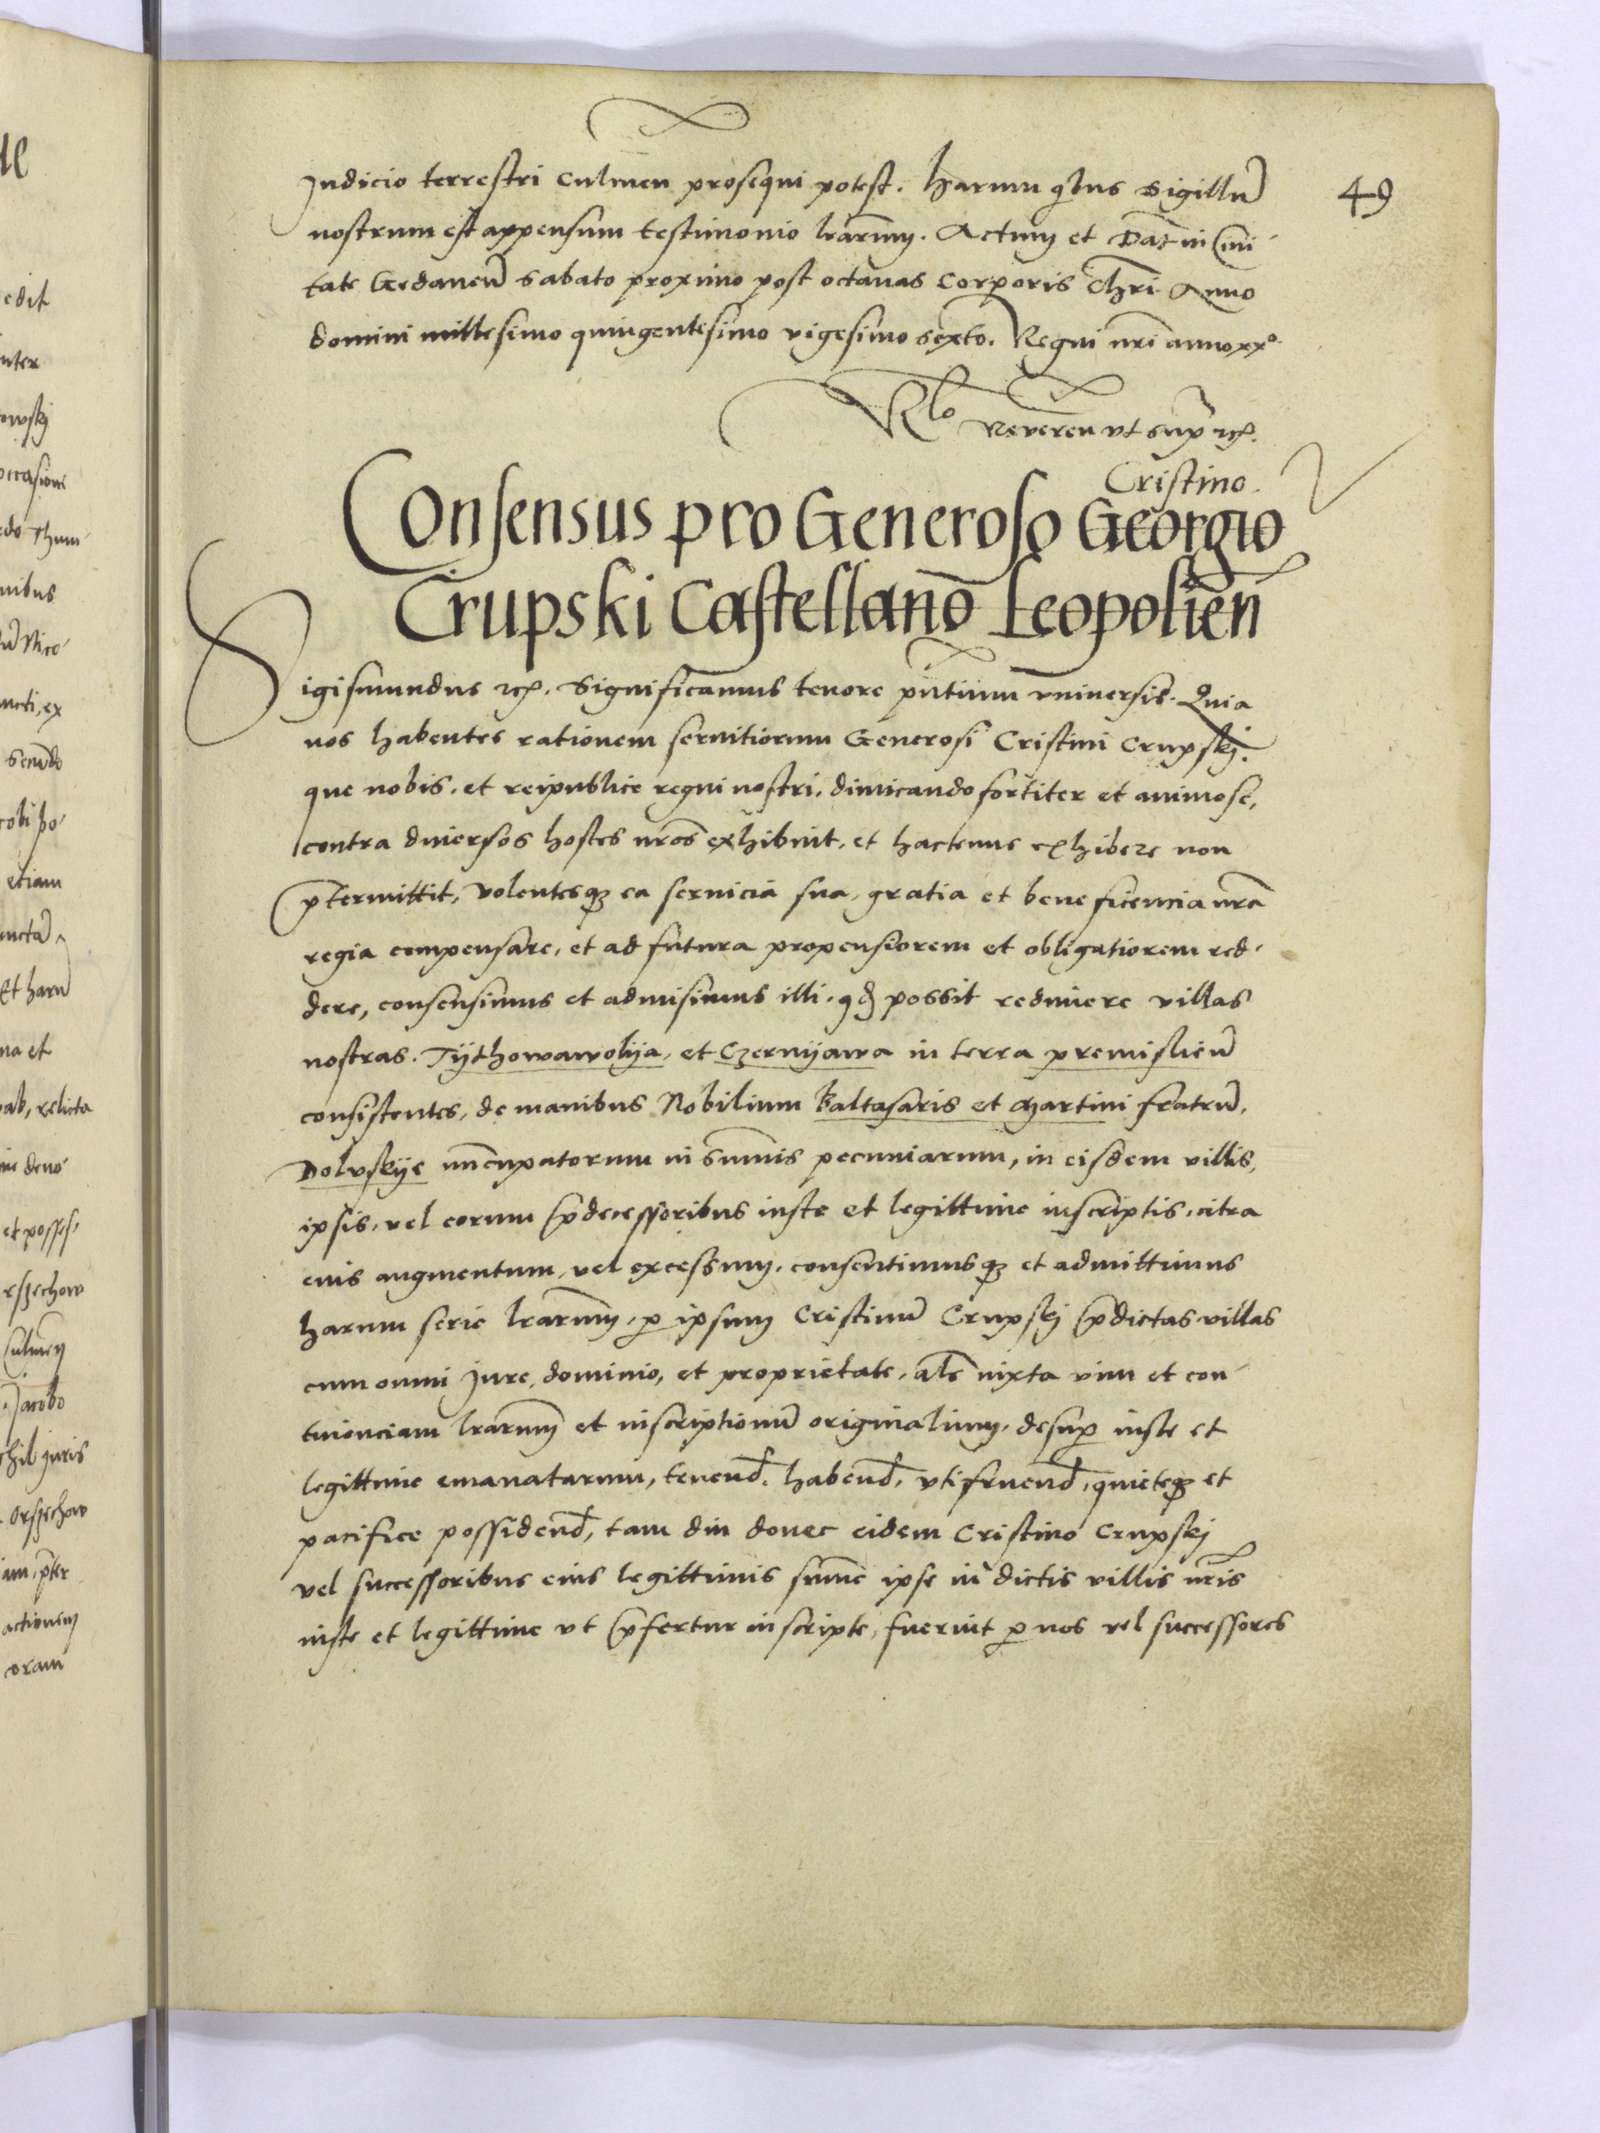 Judicio terrestri culmen prosequi potest. Harum qibus Sigillū
49
nostrum est appensum testimonio lrarum. Actum et Dat in Civi-
tate Gedaneñ sabato proximo post octavas Corporis Chri Anno
domini millesimo quingentesimo vigesimo sexto. Regni nri anno xxº
Rlo Reveren ut supra etc.
Cristino.
Consensus pro Generoso Georgio
Crupski Castellano Leopolieñ
Sigismundus etc. Significamus tenore pñtium universis. Quia
nos habentes rationem servitiorum Generosi Cristini Crupskj.
que nobis. et reipublice regni nostri. dimicando fortiter et animose,
contra diversos hostes nros exhibuit. et hactenus exhibere non
ptermittit, volentesq ea servicia sua, gratia et beneficencia nra
regia compensare, et ad futura propensiorem et obligatiorem red-
dere, consensimus et admisimus illi. qd possit redimere villas
nostras. Tythowawolya, et Czernyawa in terra premislieñ
consistentes, de manibus Nobilium Baltasaris et Martini fratrū,
Dolvskye nūcupatorum in sumis pecuniarum, in eisdem villis,
ipsis, vel eorum pdecessoribus iuste et legittime inscriptis, citra
eius augmentum, vel excessum, consentimusq et admittimus
harum serie lrarum, p ipsum Cristinū Crupskj pdictas villas
cum omni Jure, dominio, et proprietate, als iuxta vim et con-
tinenciam lrarum et inscriptionū originalium, desup iuste et
legittime emanatarum, tenend. habend, utifruend, quieteq et
pacifice possidend, tam diu donec eidem Cristino Crupskj
vel successoribus eius legittimis sume ipse in dictis villis nris
iuste et legittime ut pfertur inscripte, fuerint p nos vel successores